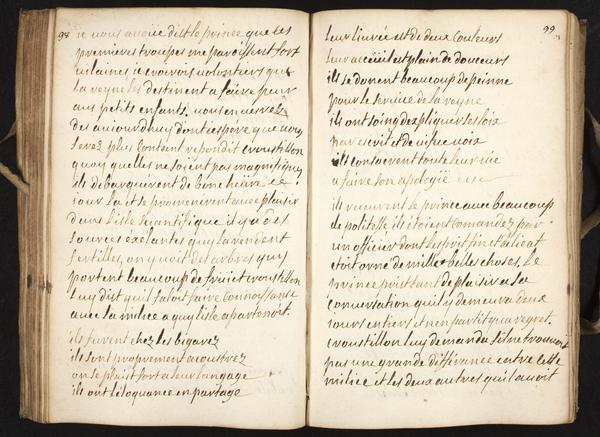 98
ie vous avoüe dist le prince que ses
premieres troupes me paroissent fort
uilaines ie croirois uolontiers que
la reyne les destinent a faire peur
aux petits enfants. uous en uerez
des auiourdhuy dont iespere que uous
serez plus contant repondit croustillon
quoy quelles ne soient pas magnifiques
ils debarquerent de bone heure ce
iour la et se promenerent auec plaisir
dans lisle scientifique il y a des
sources exelantes quy la rendent
fertilles, on y uoit des arbres quy
portent beaucoup de fruict croustillon
luy dit quil faloit faire connoissance
auec la milice a quy lisle apartenoit.
ils furent chez les bigarez
ils sont proprement acoustrez
on se plaist fort a leur langage
ils ont leloquance en partage
99
leur liurée est de deux couleurs
leur acceüil est plain de douceurs
ils se donent beaucoup de peinne
pour le seruice de la reyne
ils ont soing dexpliquer ses loix
par escrit et de uiue uoix
ils consacrent toute leur uie
a faire son apologie
ils receurent le prince auec beaucoup
de politesse ils étoient comandez par
un officier dont lesprit fin et delicat
etoit orné de mille belles choses, le
prince prist tant de plaisir a sa
conuersation quil y demeura deux
iours entiers et nen partit qua regret.
croustillon luy demanda sil ne trouuoit
pas une grande differance entre cette
milice et les deux autres quil auoit